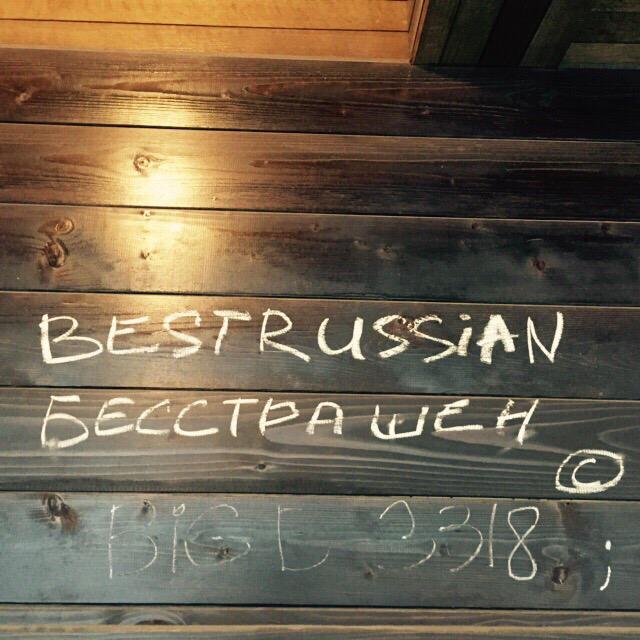 BESTRUSSiAN
БЕССТРАШЕН
©
BiG D 3318 ;